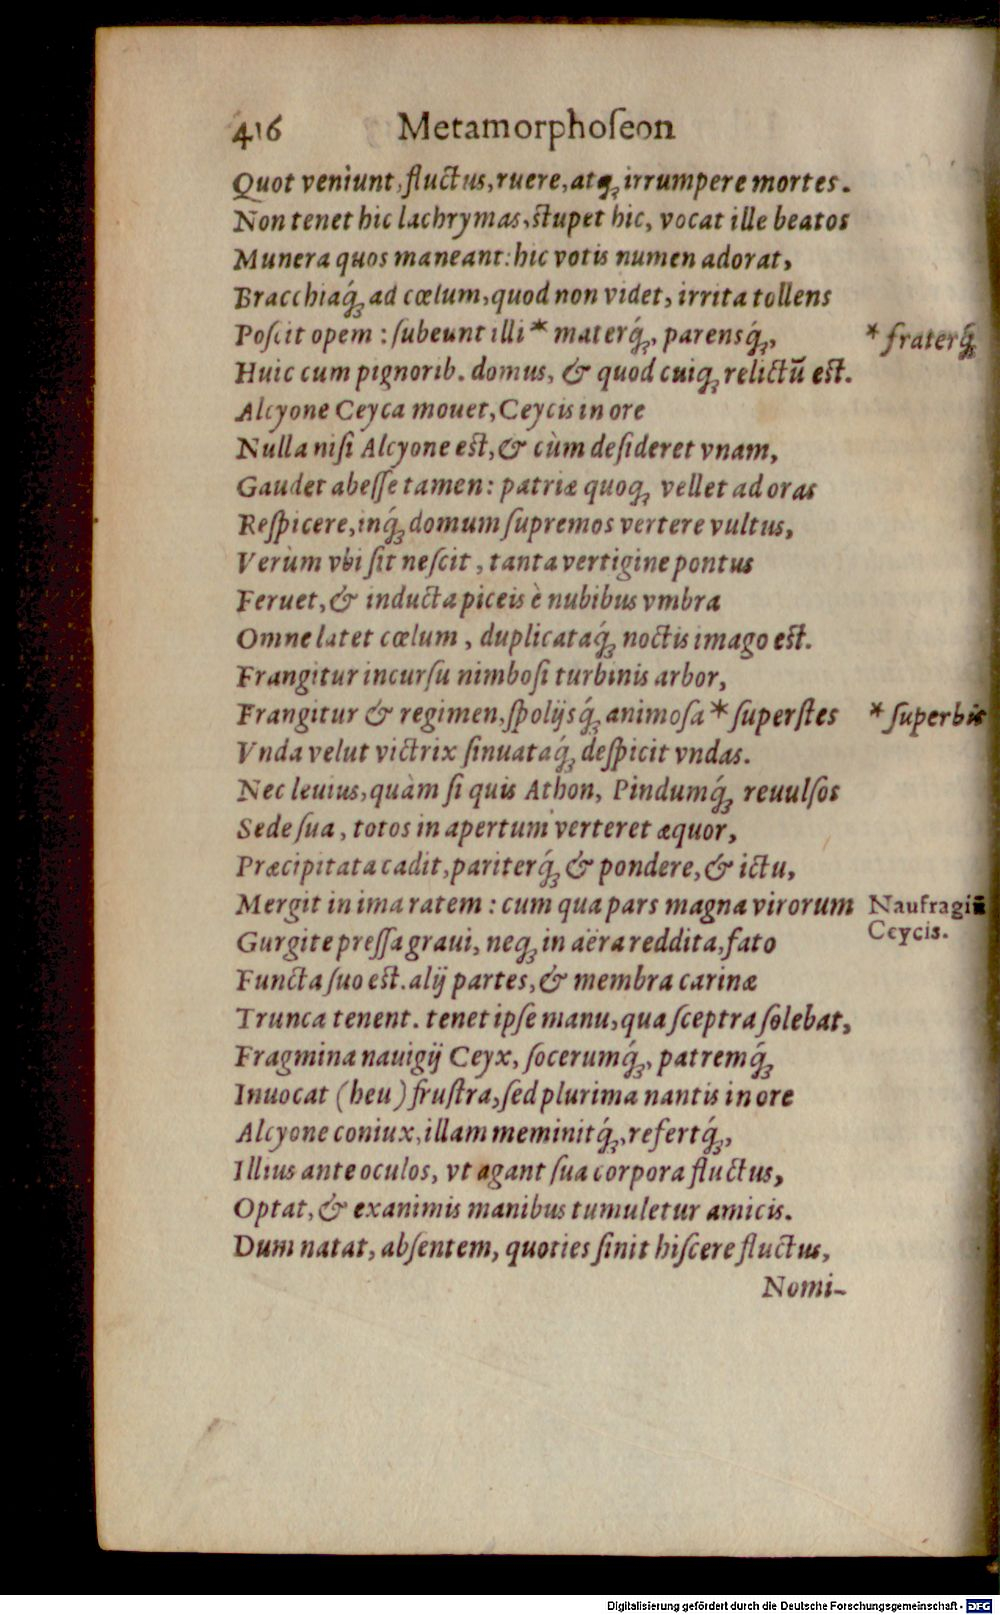 416 Metamorphoſeon
Quot veniunt, fluctus, ruere, atq; irrumpere mortes.
Non tenet hic lachrymas, ſtupet hic, vocat ille beatos
Munera quos maneant: hic votis numen adorat,
Bracchiaq́; ad cœlum, quod non videt, irrita tollens
Poſcit opem: ſubeunt illi * materq́;, parensq́;,
* fraterq́;
Huic cum pignorib. domus, & quod cuiq; relictū eſt.
Alcyone Ceyca mouet, Ceycis in ore
Nulla niſi Alcyone eſt, & cùm deſideret vnam,
Gaudet abeſſe tamen: patriæ quoq; vellet ad oras
Reſpicere, inq́; domum ſupremos vertere vultus,
Verùm vbi ſit neſcit, tanta vertigine pontus
Feruet, & inducta piceis è nubibus vmbra
Omne latet cœlum, duplicataq́; noctis imago eſt.
Frangitur incurſu nimboſi turbinis arbor,
Frangitur & regimen, ſpolijsq́; animoſa * ſuperſtes
* ſuperbis
Vnda velut victrix ſinuataq́; deſpicit vndas.
Nec leuius, quàm ſi quis Athon, Pindumq́; reuulſos
Sede ſua, totos in apertum verteret æquor,
Præcipitata cadit, pariterq́; & pondere, & ictu,
Mergit in ima ratem: cum qua pars magna virorum
Naufragiū
Ceycis.
Gurgite preſſa graui, neq; in aëra reddita, fato
Functa ſuo eſt. alij partes, & membra carinæ
Trunca tenent. tenet ipſe manu, qua ſceptra ſolebat,
Fragmina nauigij Ceyx, ſocerumq́;, patremq́;
Inuocat (heu) fruſtra, ſed plurima nantis in ore
Alcyone coniux, illam meminitq́;, refertq́;,
Illius ante oculos, vt agant ſua corpora fluctus,
Optat, & exanimis manibus tumuletur amicis.
Dum natat, abſentem, quoties ſinit hiſcere fluctus,
Nomi-
Digitalisierung gefördert durch die Deutsche Forschungsgemeinschaft - DFG